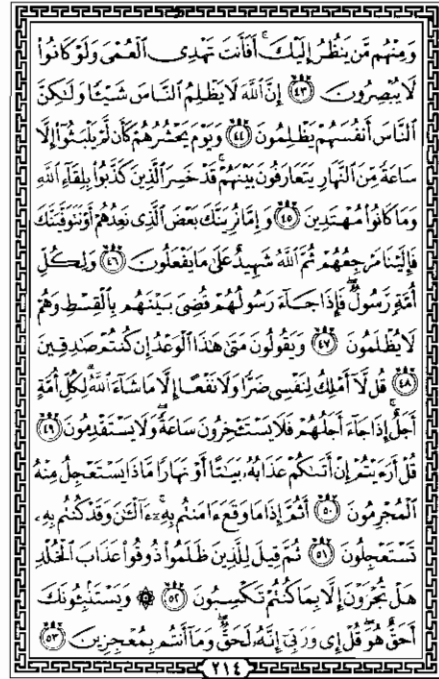 وَمِنْهُم مَّن يَنظُرُ إِلَيْكَ ۚ أَفَأَنتَ تَهْدِى ٱلْعُمْىَ وَلَوْ كَانُوا۟
لَا يُبْصِرُونَ ۝٤٣ إِنَّ ٱللَّهَ لَا يَظْلِمُ ٱلنَّاسَ شَيْـًٔا وَلَـٰكِنَّ
ٱلنَّاسَ أَنفُسَهُمْ يَظْلِمُونَ ۝٤٤ وَيَوْمَ يَحْشُرُهُمْ كَأَن لَّمْ يَلْبَثُوٓا۟ إِلَّا
سَاعَةً مِّنَ ٱلنَّهَارِ يَتَعَارَفُونَ بَيْنَهُمْ ۚ قَدْ خَسِرَ ٱلَّذِينَ كَذَّبُوا۟ بِلِقَآءِ ٱللَّهِ
وَمَا كَانُوا۟ مُهْتَدِينَ ۝٤٥ وَإِمَّا نُرِيَنَّكَ بَعْضَ ٱلَّذِى نَعِدُهُمْ أَوْ نَتَوَفَّيَنَّكَ
فَإِلَيْنَا مَرْجِعُهُمْ ثُمَّ ٱللَّهُ شَهِيدٌ عَلَىٰ مَا يَفْعَلُونَ ۝٤٦ وَلِكُلِّ
أُمَّةٍ رَّسُولٌ ۖ فَإِذَا جَآءَ رَسُولُهُمْ قُضِىَ بَيْنَهُم بِٱلْقِسْطِ وَهُمْ
لَا يُظْلَمُونَ ۝٤٧ وَيَقُولُونَ مَتَىٰ هَـٰذَا ٱلْوَعْدُ إِن كُنتُمْ صَـٰدِقِينَ
۝٤٨ قُل لَّآ أَمْلِكُ لِنَفْسِى ضَرًّا وَلَا نَفْعًا إِلَّا مَا شَآءَ ٱللَّهُ ۗ لِكُلِّ أُمَّةٍ
أَجَلٌ ۚ إِذَا جَآءَ أَجَلُهُمْ فَلَا يَسْتَـْٔخِرُونَ سَاعَةً ۖ وَلَا يَسْتَقْدِمُونَ ۝٤٩
قُلْ أَرَءَيْتُمْ إِنْ أَتَىٰكُمْ عَذَابُهُۥ بَيَـٰتًا أَوْ نَهَارًا مَّاذَا يَسْتَعْجِلُ مِنْهُ
ٱلْمُجْرِمُونَ ۝٥٠ أَثُمَّ إِذَا مَا وَقَعَ ءَامَنتُم بِهِۦٓ ۚ ءَآلْـَٔـٰنَ وَقَدْ كُنتُم بِهِۦ
تَسْتَعْجِلُونَ ۝٥١ ثُمَّ قِيلَ لِلَّذِينَ ظَلَمُوا۟ ذُوقُوا۟ عَذَابَ ٱلْخُلْدِ
هَلْ تُجْزَوْنَ إِلَّا بِمَا كُنتُمْ تَكْسِبُونَ ۝٥٢ ۞ وَيَسْتَنۢبِـُٔونَكَ
أَحَقٌّ هُوَ ۖ قُلْ إِى وَرَبِّىٓ إِنَّهُۥ لَحَقٌّ ۖ وَمَآ أَنتُم بِمُعْجِزِينَ ۝٥٣
٢١٤